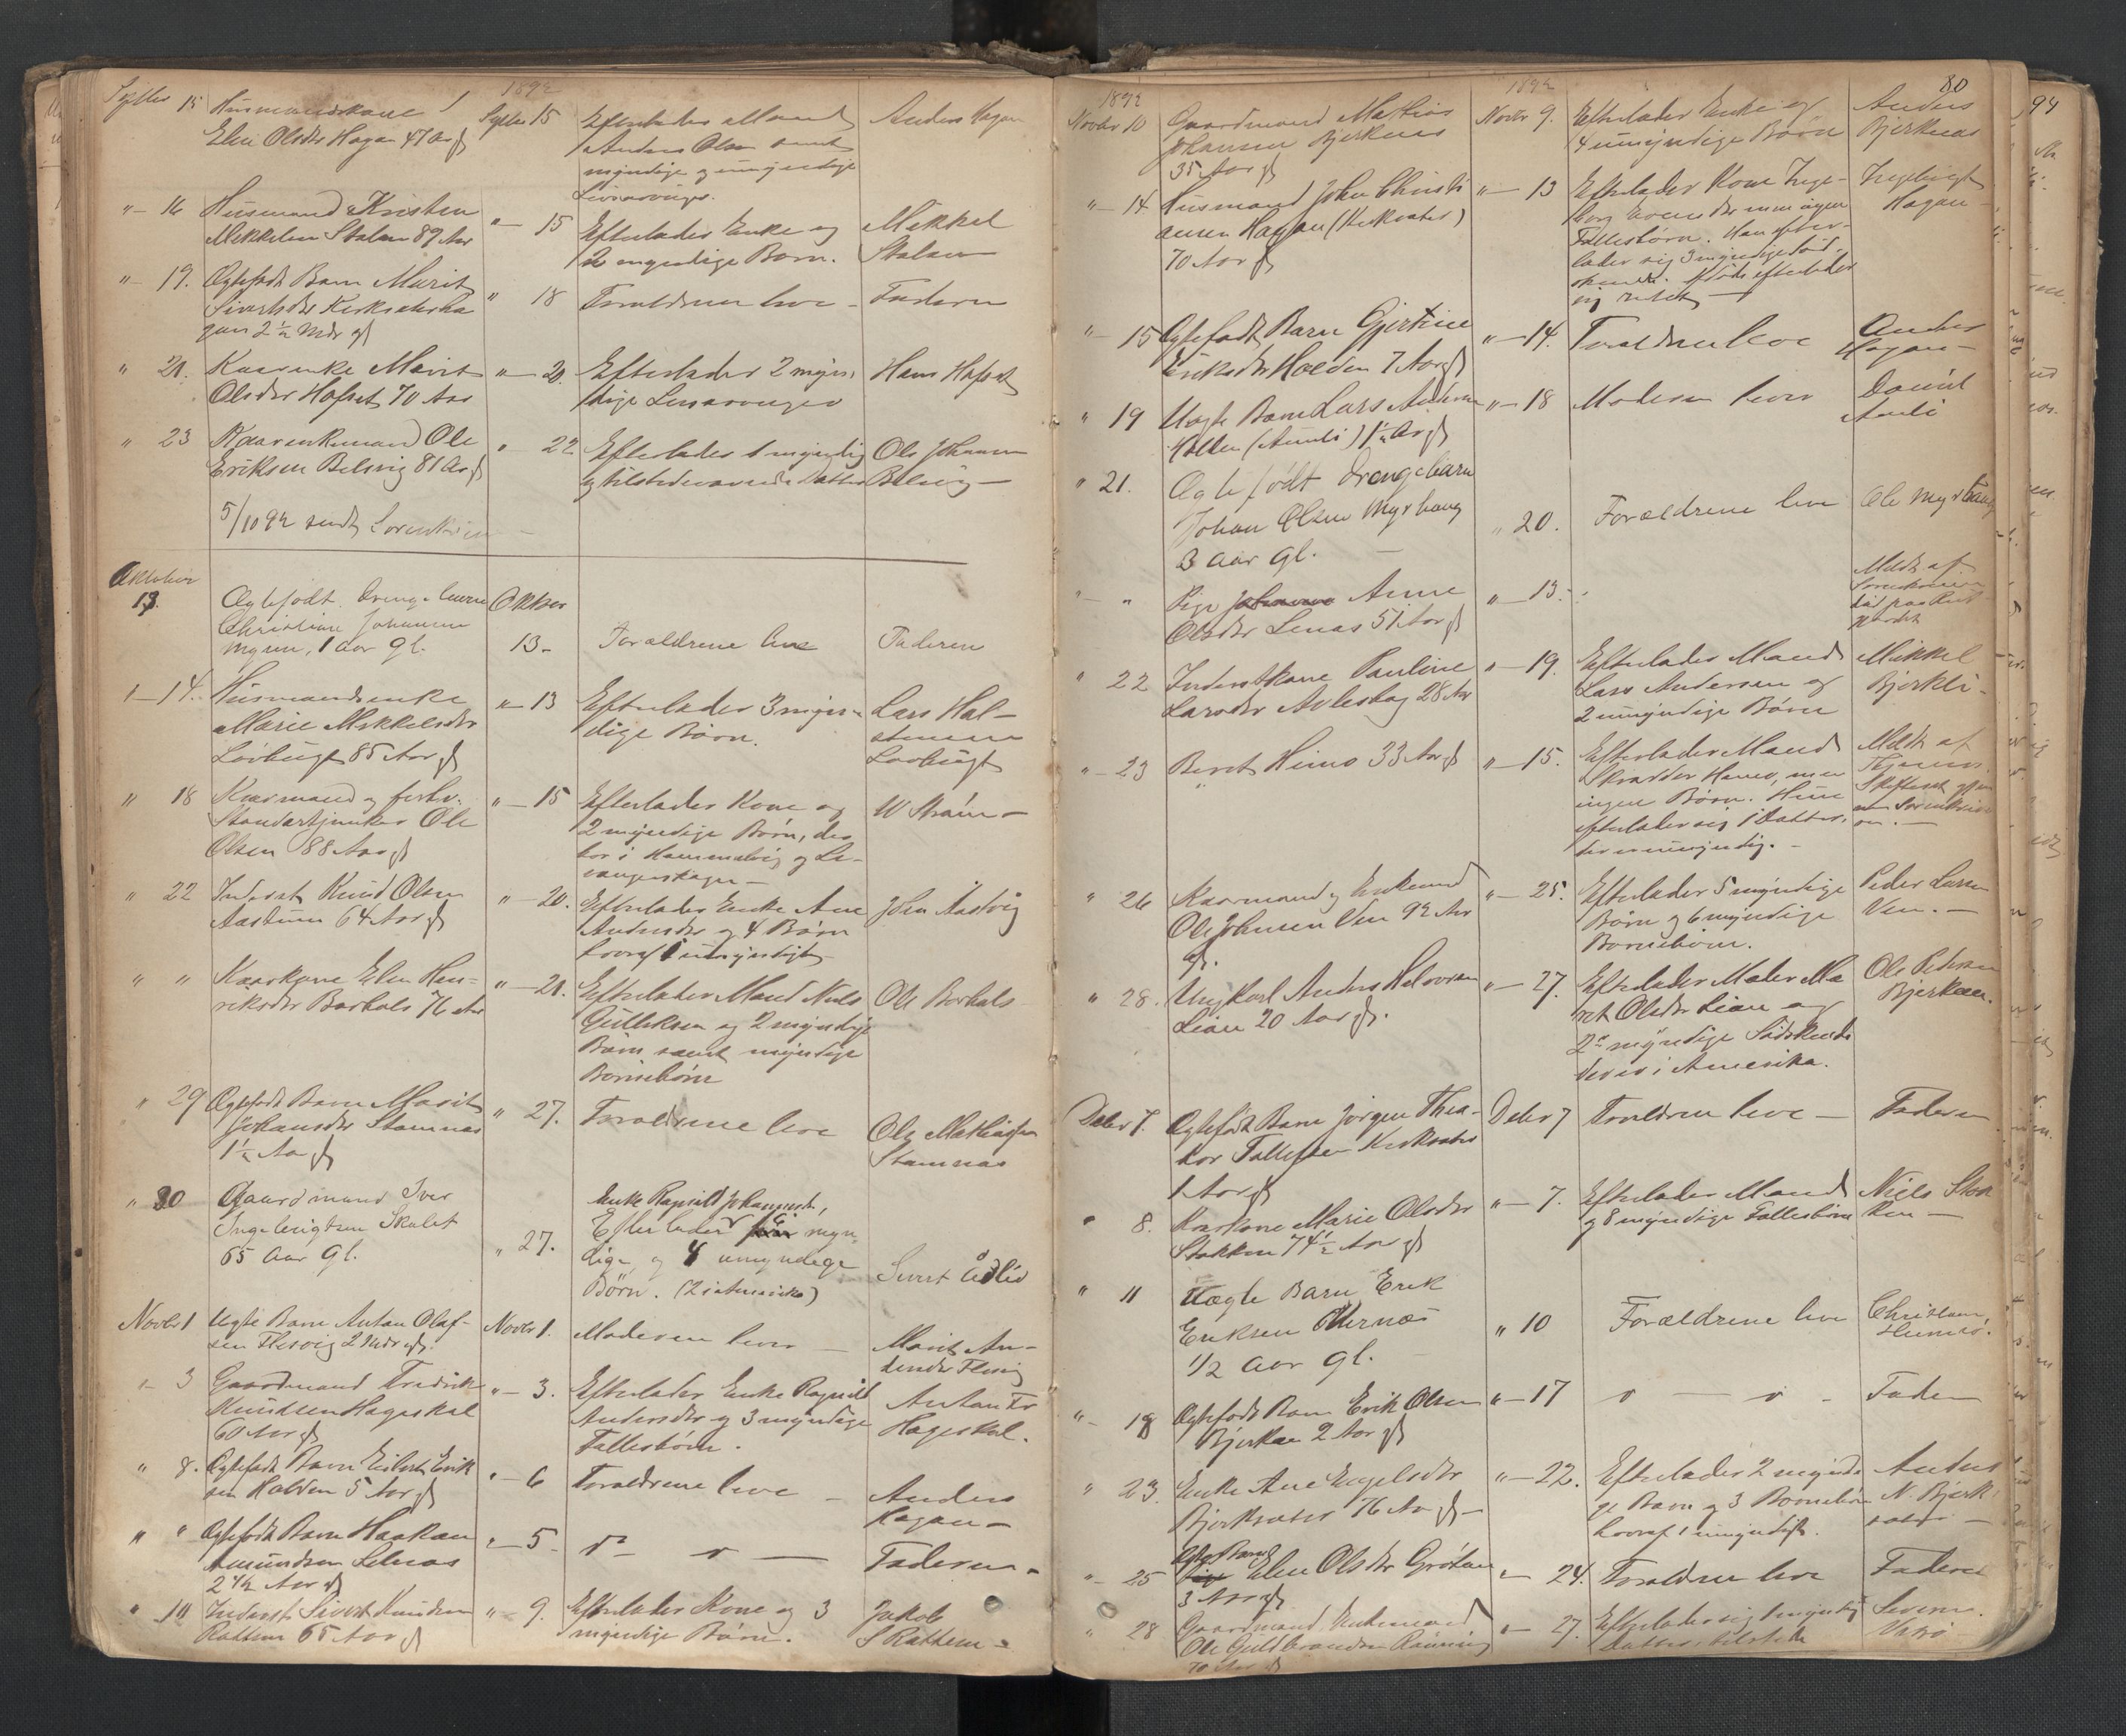 1892
15 Husmandskone
Elen Olsdtr Hagen 47 Aar gl
15
Efterlader Mand
Anders Olsen samt
myndige og umyndige
Livsarvinger.
Anders Hagen
" 16 Husmand Kristen
Mikkelsen Stalsen 89 Aar
" 15
Efterlader Enke og
2 myndige Børn.
Mikkel
Stalsen
" 19. Ægtefødt Barn Marit
Sivertsdtr Kirksæterha
gen 2 1/2 Mdr gl
" 18 Forældrene leve - Faderen
" 21. Kaarenke Marit
Olsdtr Hafset 70 Aar
" 20. Efterlader 2 myn-
dige Livsarvinger
Hans Hafset
" 23 Kaarenkemand Ole
Eriksen Belsvig 81 Aar gl
" 22 Efterlader 1 myndig
og tilstedeværende Datter
Ole Johansen
Belsvig -
5/10 92 sendt Sorenskriveren
Oktober
13. Ægtefødt Drengebarn
Christian Johansen
Myren, 1 aar gl.
Oktber
13. Forældrene leve Faderen
" 14. Husmandsenke
Marie Mikkelsdtr
Lovbugt 85 Aar gl
" 13 Efterlader 3 myn-
dige Børn.
Lars Hal-
stensen
Lovbugt
" 18 Kaarmand og forhv.
Standartjunker Ole
Olsen 88 Aar gl
" 15 Efterlader Kone og
2 myndige Børn, der
bor i Hommelvig og Le-
vangerskogn -
W Strøm -
" 22 Inderst Knud Olsen
Aastum 64 Aar gl
" 20. Efterlader Enke Ane
Andersdtr og 4 Børn
hvoraf 1 umyndigt
John Aastvig
" " Kaarkone Elen Hen-
riksdtr Borhals 76 Aar
" 21. Efterlader Mand Niels
Gulliksen og 2 myndige
Børn samt myndige
Børnebørn
Ole Borhals
" 29 Ægtefødt Barn Marit
Johansdtr Stamnas
1 1/2 Aar gl
" 27. Forældrene leve
Ole Mathiasen
Stamnas
" 30 Gaardmand Iver
Ingebrigtsen Skalet
65 Aar gl.
" 27.
Enke Ragnild Johannesdtr,
Efterlader myn-
dige, og 4 umyndige
Børn. (2 i Amerika)
Sivert Ødlid
Novbr 1 Uægte Barn Anton Olaf-
sen Flesvig 2 Mdr gl.
Novbr 1. Moderen lever -
Marit An-
dersdtr Flesvig
" 3 Gaardmand Fredrik
Knudsen Hageskal
60 Aar gl
" 3. Efterlader Enke Ragnild
Andersdtr og 3 myndige
Fællesbørn.
Anton Fr
Hageskal.
" 8. Ægtefødt Barn Eilert Erik
sen Holden 5 Aar gl
" 6 Forældrene leve -
Anders
Hagan -
" " Ægtefødt Barn Haakon
Amundsen Selnas
2 1/2 Aar gl
" 5 Faderen -
" 10 Inderst Sivert Knudsen
Rottem 65 Aar gl
" 9. Efterlader Kone og 3
myndige Børn.
Jakob
S Rottem -
1892
1892
80
Novbr 10 Gaardmand Mathias
Johansen Bjerknes
35 Aar gl
Novbr 9. Efterlader Enke og
4 umyndige Børn
Anders
Bjerknes
" 14 Husmand John Christi
ansen Hagan (Kirksæter)
70 Aar gl
" 13 Efterlader Kone Inge-
borg Evensdtr men ingen
Fællesbørn. Han efter-
lader sig 3 myndige Sød-
skende.
Ingebrigt
Hagan -
" 15 Ægtefødt Barn Gjertine
Eriksdtr Holden 7 Aar gl
" 14. Forældrene leve
Anders
Hagan -
" 19 Uægte Barn Lars
(Aunli) 1 1/2 Aar gl
" 18 Moderen lever
Daniel
Aunli
" 21. Ægtefødt Drengebarn
Johan Olsen Myrhaug
3 aar gl. -
" 20. Forældrene leve Ole Myrhaug
" " Pige Johanna Anne
Olsdtr Lenas 51 Aar gl
" 13.
Meldt af
" 22 Inderstkone Pauline
Larsdtr Aaleskag 28 Aar
" 19. Efterlader Mand
Lars Andersen og
2 umyndige Børn
Mikkel
Bjerkli -
" 23 Beret Himo 33 Aar gl
" 15. Efterlader Mand
Skrædder Hemo, men
ingen Børn. Hun
efterlader sig 1 Datter,
der er umyndig. -
Meldt af
" 26 Kaarmand og Enkemand
Ole Johnsen Ven 92 Aar
gl.
" 25. Efterlader 5 myndige
Børn og 6 myndige
Børnebørn.
Peder Larsen
Ven. -
" 28. Ungkarl Anders Halvorsen
Lian 20 Aar gl.
" 27. Efterlader Moder Ma
rit Olsdtr Lian og
2 myndige Sødskende
der er i Amerika.
Ole Pedersen
Bjerkan.
Debr 7. Ægtefødt Barn Jørgen Thea-
dor Tollefsen Kirksæter
1 Aar gl
Debr 7 Forældrene leve - Faderen
" 8. Kaarkone Marie Olsdtr
Stokken 74 1/2 Aar gl
" 7. Efterlader Mand
og 8 myndige Fællesbørn
Niels Stok
ken -
" 11 Uægte Barn Erik
Eriksen Vernæs
1/2 aar gl.
" 10 Forældrene leve
Christian
" 18 Ægtefødt Barn Erik Olsen
Bjerkan 2 Aar gl
" 17 Faderen
" 23. Enke Ane Engelsdtr
Bjerksæter 76 Aar gl -
" 22. Efterlader 2 myndi
ge Børn og 3 Børnebørn
hvoraf 1 umyndigt.
Anders
N. Bjerk
sæter -
" 25 Ægte Barn
Elen Olsdtr Grøtan
3 Aar gl
" 24. Forældrene leve Faderen
" 28 Gaardmand, Enkemand
Ole Guldbrandsen Rønning
70 Aar gl
" 27. Efterlader sig 1 myndig
Datter, tilstede
94